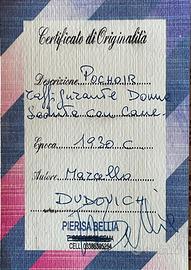 Certificato di Originalità
Descrizione Pochoir
raffigurante Donna
Seduta con cane
Epoca 1930 C
Autore Marcello
DUDOVICH
PIERISA BELLIA